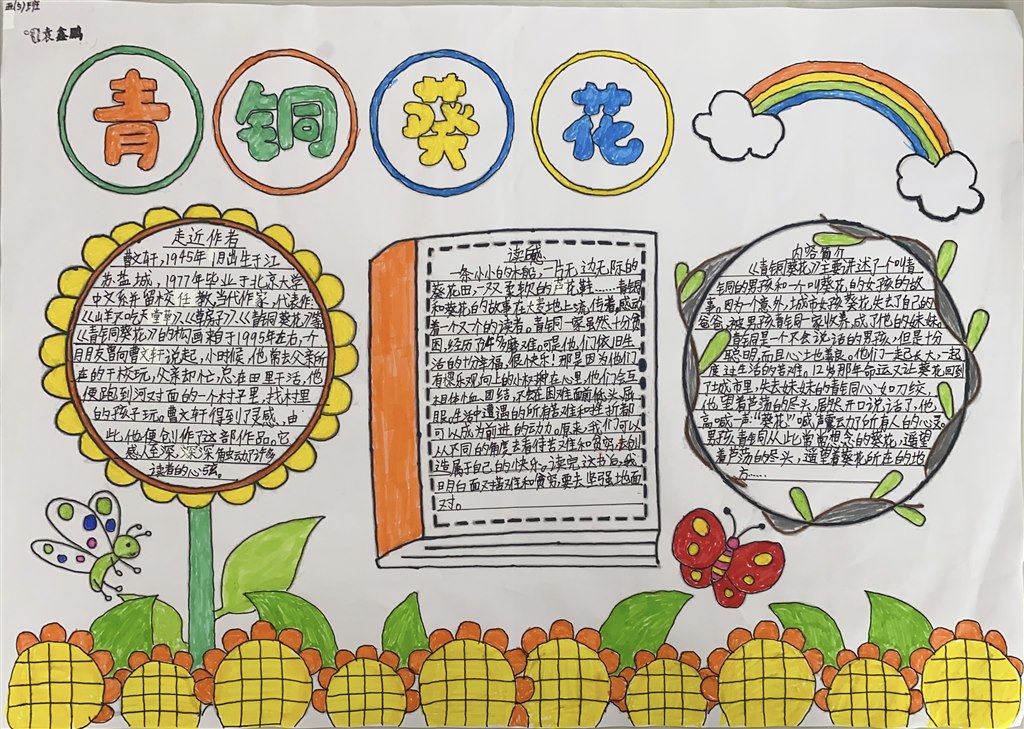 五(5)班
袁鑫鹏
青铜葵花
走近作者
曹文轩,1945年1月出生于江
苏盐城,1977年毕业于北京大学
中文系并留校任教,当代作家,代表作
《山羊不吃天堂草》《草房子》《青铜葵花》等
《青铜葵花》的构画来自于1995年左右,一个
月朋友曾向曹文轩说起,小时候,他常去父亲所
在的干校玩,父亲却忙,总在田里干活,他
便跑到河对面的一个村子里,找村里
的孩子玩。曹文轩得到了灵感,由
此他便创作了这部作品。它
感人至深,深深触动了许多
读者的心弦。
读后感
一条小小的木船,一片无边无际的
葵花田,一双柔软的芦花鞋……青铜
和葵花的故事在大麦地上流传着,感动
着一个又一个的读者。青铜一家虽然十分贫
困,经历了许多磨难。可是他们依旧生
活的十分幸福,很快乐!那是因为他们
有惯乐观向上的小树在心里,他们会互
相体恤团结,不会在困难面前低头屈
服,生活中遭遇的所有苦难和挫折都
可以成为前进的动力。原来,我们可以
从不同的角度去看待苦难和贫穷,去创
造属于自己的快乐。读完这书后,我
明白面对苦难和贫穷,要去坚强地面
对。
内容简介
《青铜葵花》主要讲述了一个叫青
铜的男孩和一个叫葵花的女孩的故
事。因为一个意外,城市女孩葵花失去了自己的
爸爸,被男孩青铜一家收养,成了他的妹妹
青铜是一个不会说话的男孩,但是十分
聪明,而且心士也善良。他们一起长大,一起
度过生活的苦难。12岁那年命运又让葵花回到
了城市里,失去妹妹的青铜心如刀绞,
他望着芦荡的尽头,居然开口说话了,他
高喊一声“葵花”喊声震动了所有人的心灵。
男孩青铜从此常常想念的葵花,遥望
着芦荡的尽头,遥望着葵花所在的地
方……